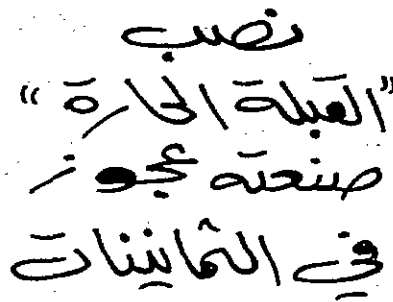 نصب
"القبلة الحارة"
صنعته عجوز
في الثمانينات